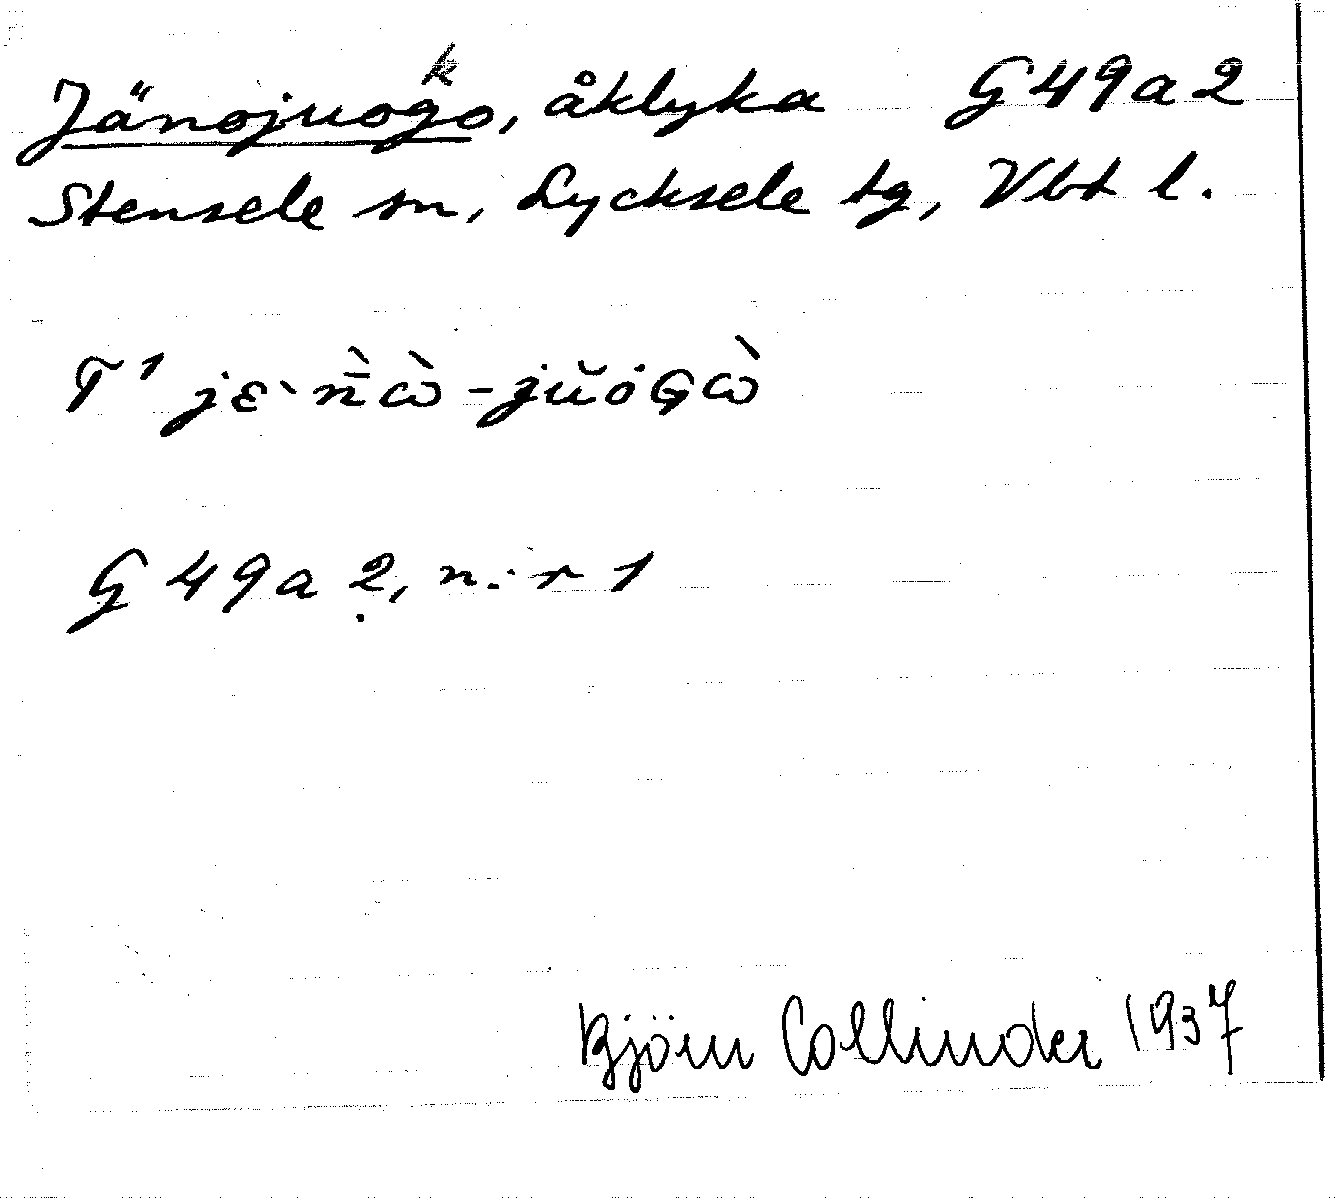 k
Jänojuogo, åklyka G 49 a 2
Stensele sn, Lycksele tg, Vbt l.
T¹ jɛ̀n̄̀ὼ-jŭȯGὼ
G 49 a 2, n:r 1
Björn Collinder 1937